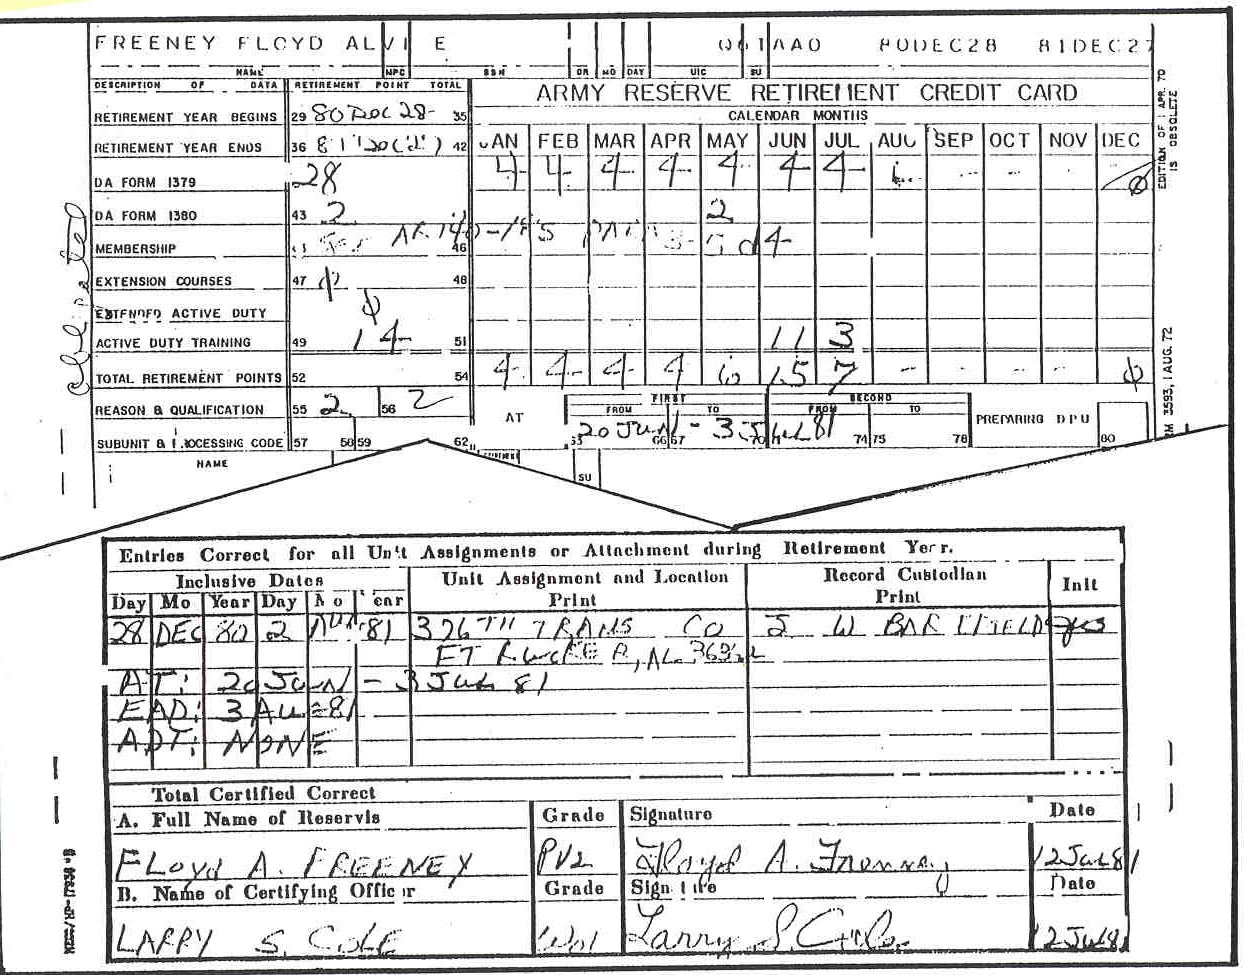 FREENEY FLOYD ALVI E 80DEC28 81DEC27
NAME NPC SSN GR MO DAY UIC SU
DESCRIPTION OF DATA RETIREMENT POINT TOTAL ARMY RESERVE RETIREMENT CREDIT CARD
CALENDAR MONTHS
RETIREMENT YEAR BEGINS 29 80 DEC 28 35
RETIREMENT YEAR ENDS 36 42 JAN FEB MAR APR MAY JUN JUL AUG SEP OCT NOV DEC
DA FORM 1379 28 4 4 4 4 4 4 4 - - - - 0
DA FORM 1380 43 2 2
MEMBERSHIP AR 140-185 46 4
EXTENSION COURSES 47 0 48
EXTENDED ACTIVE DUTY 0
ACTIVE DUTY TRAINING 49 14 51 11 3
TOTAL RETIREMENT POINTS 52 54 4 4 4 4 6 15 7 - - - - 0
REASON & QUALIFICATION 55 2 56 2 AT FIRST SECOND
FROM TO FROM TO PREPARING DPU
20 JUN - 3 JUL 81
SUBUNIT & PROCESSING CODE 57 58 59 62 63 66 67 70 74 75 78 80
NAME SU
EDITION OF 1 APR. 70
IS OBSOLETE
3593, 1 AUG. 72
Entries Correct for all Unit Assignments or Attachment during Retirement Year.
Inclusive Dates Unit Assignment and Location Record Custodian Init
Day Mo Year Day Mo Year Print Print
28 DEC 80 2 AUG 81 326TH TRANS CO J W BARFIELD
FT RUCKER, AL
AT: 20 JUN - 3 JUL 81
EAD: 3 AUG 81
ADT: NONE
Total Certified Correct
A. Full Name of Reservis Grade Signature Date
FLOYD A. FREENEY PV2 Floyd A. Freeney 12 Jul 81
B. Name of Certifying Officer Grade Signature Date
LARRY S. COLE WO1 Larry S. Cole 12 Jul 81